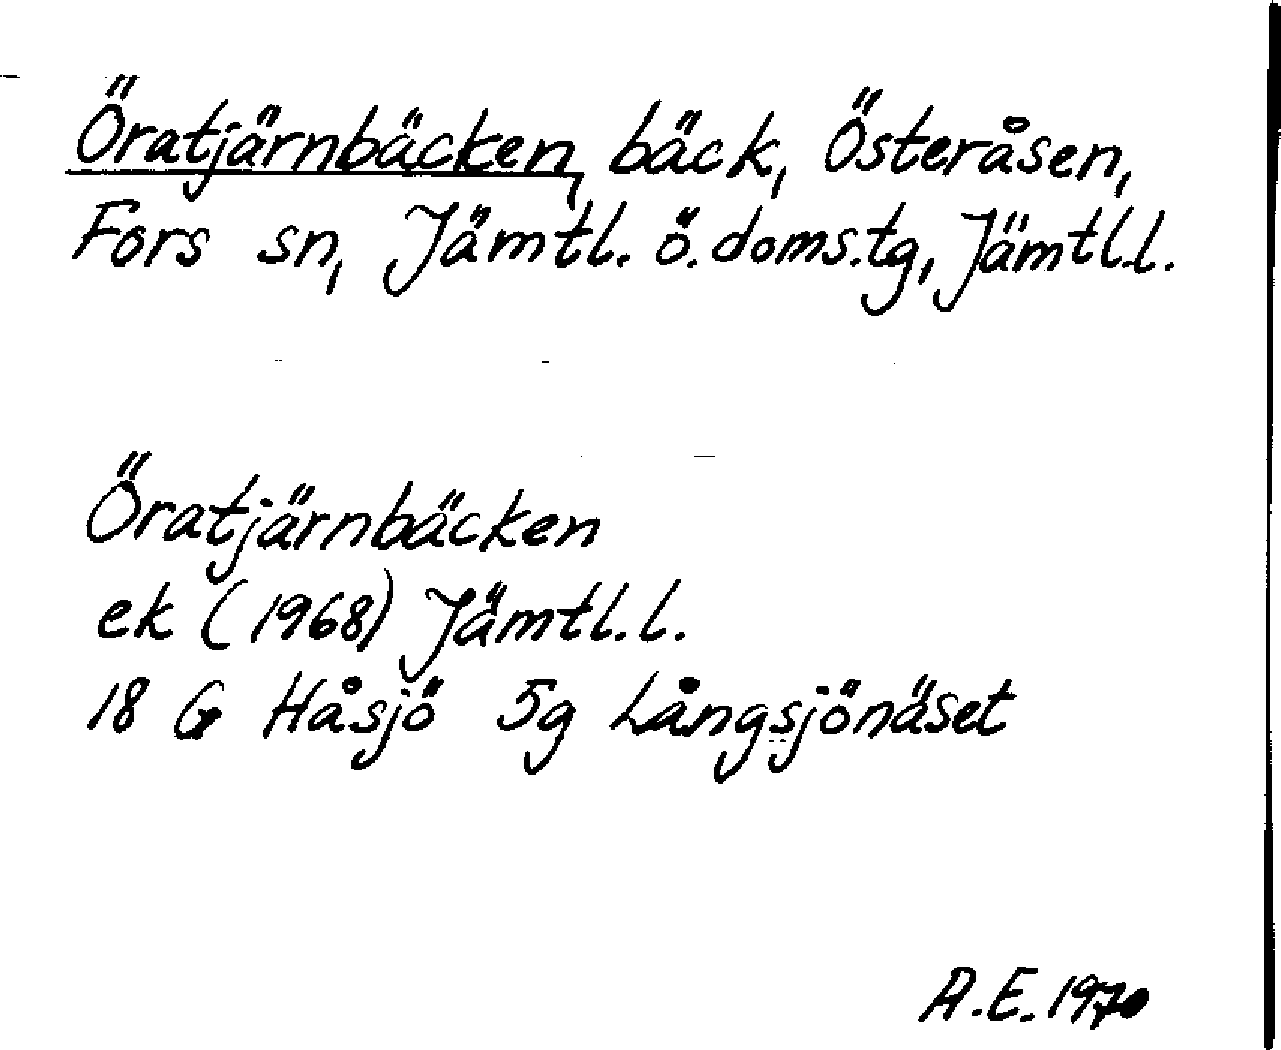 Öratjärnbäcken, bäck, Österåsen,
Fors sn, Jämtl. ö. doms.tg, Jämtl.l.
Öratjärnbäcken
ek (1968) Jämtl.l.
18 G Håsjö 5g Långsjönäset
A.E. 1970